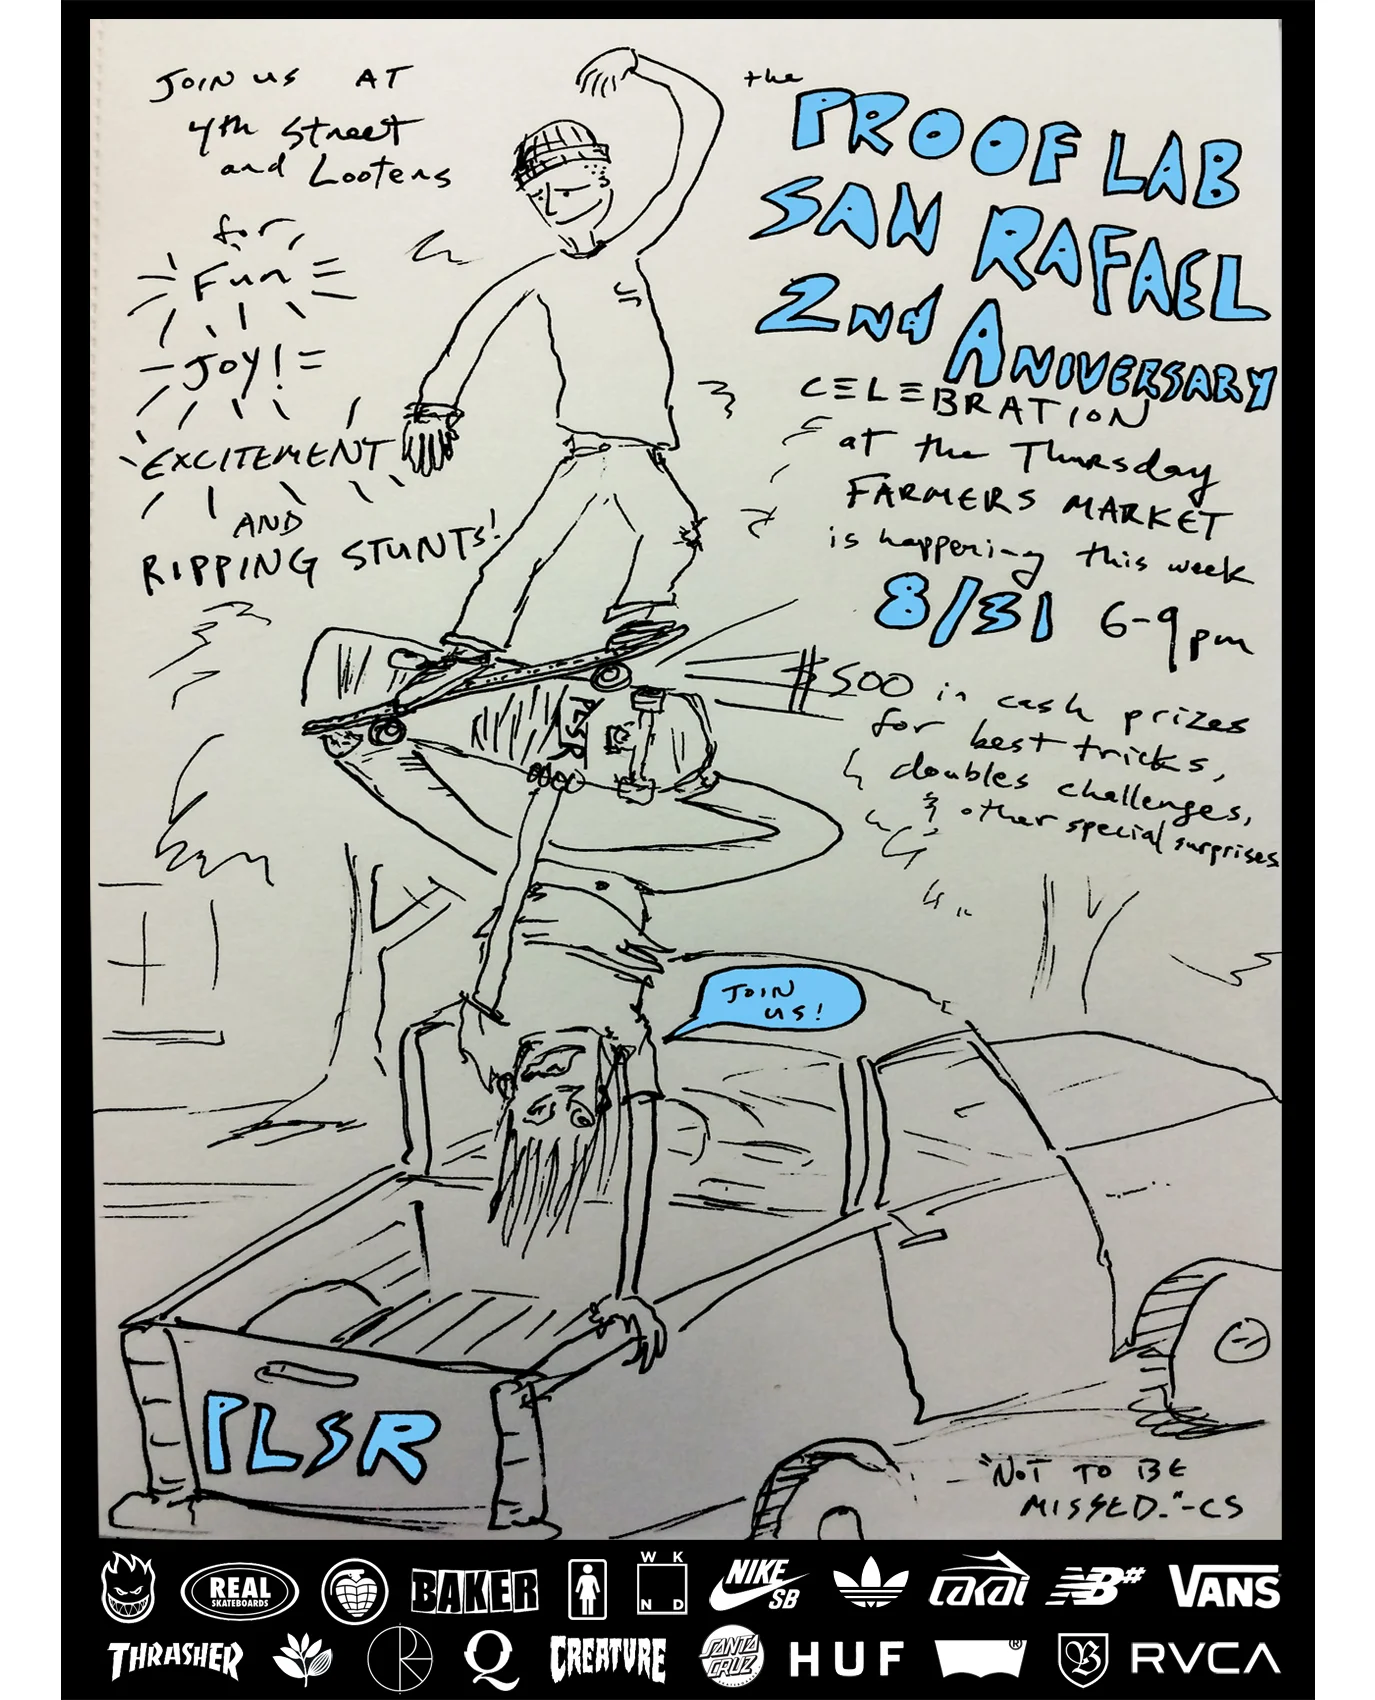 JOIN US AT
4th Street
and Lootens
for
Fun
JOY!
EXCITEMENT
AND
RIPPING STUNTS!
the
PROOF LAB
SAN RAFAEL
2nd ANIVERSARY
CELEBRATION
at the Thursday
FARMERS MARKET
is happening this week
8/31 6-9pm
$500 in cash prizes
for best tricks,
doubles challenges,
& other special surprises
PLSR
JOIN
US!
PLSR
"NOT TO BE
MISSED."-CS
REAL
SKATEBOARDS
BAKER
WK
ND
NIKE
SB
adidas
LAKAI
NB#
VANS
THRASHER
Q
CREATURE
SANTA
CRUZ
HUF
®
B
RVCA